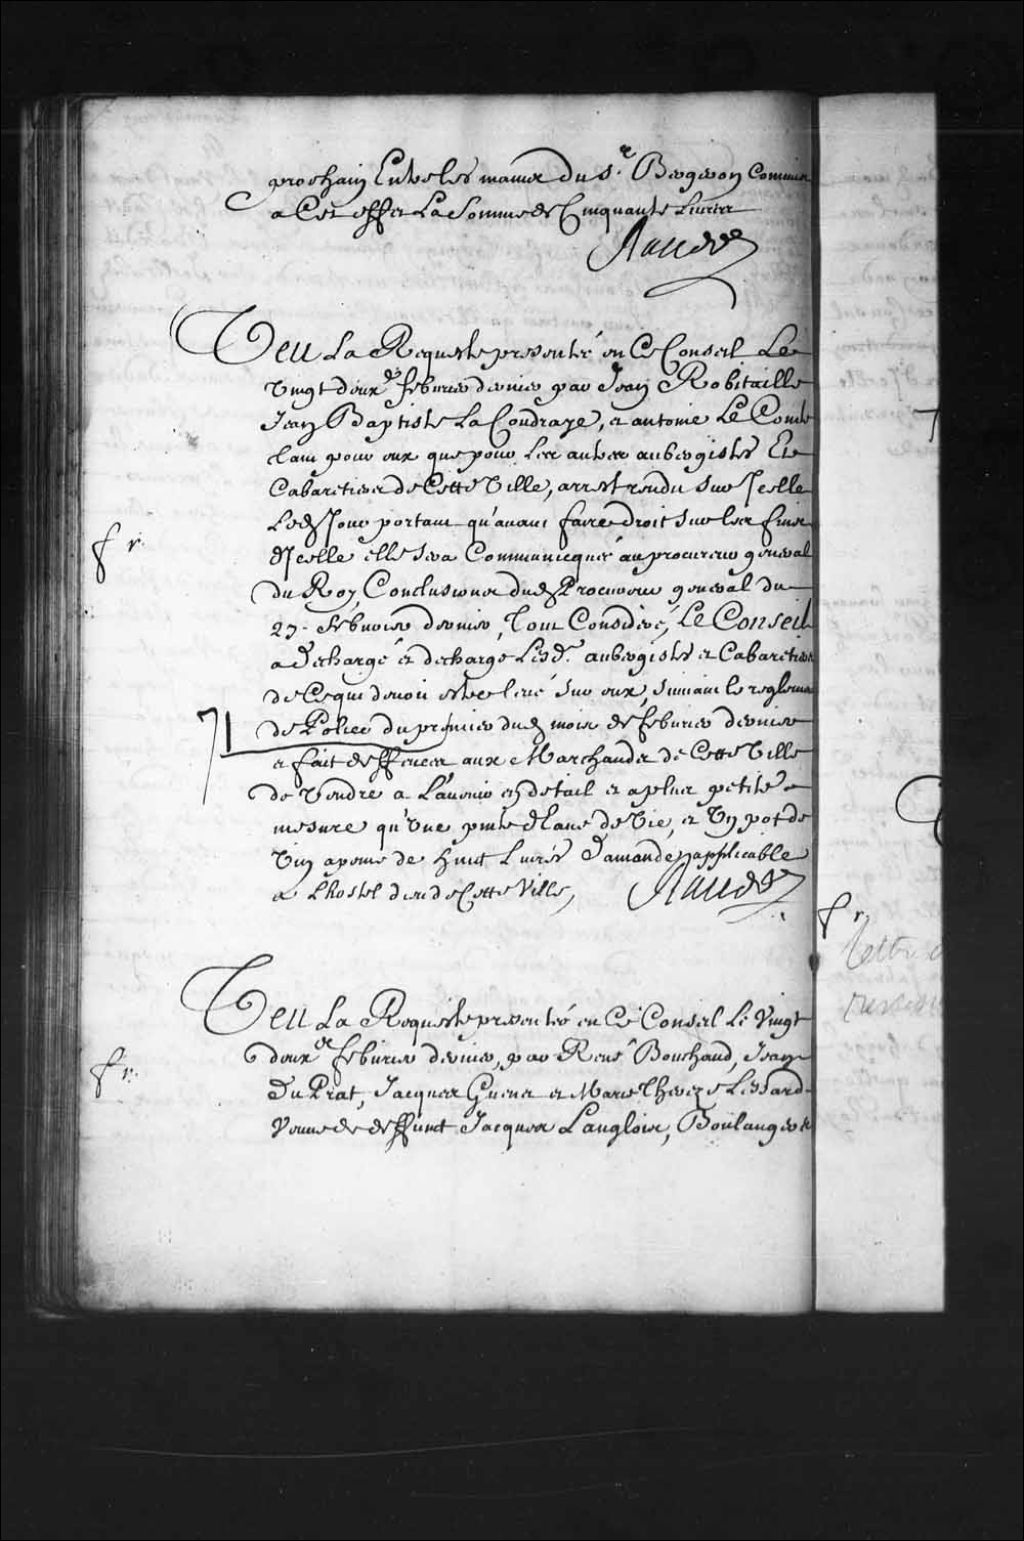 prochain Entre les mains du Sr. Bergeron Commis
a Cet effet La Somme de Cinquante Livres
Raudot
Veu La Requeste presentée en Ce Conseil Le
vingt deuxe febvrier dernier par Jean Robitaille
Jean Baptiste La Coudraye, et antoine Le Comte
tant pour eux que pour Les autres aubergistes Et
Cabaretiers de Cette Ville, arrest rendu Sur Icelle
Led Jour portant qu'avant faire droit Sur les fins
dIcelle elle Sera Communicquée au procureur general
du Roy, Conclusions dud Procureur general du
27. febvrier dernier, Tout Consideré, Le Conseil
a decharge et decharge Lesd. aubergistes et Cabaretiers
de Ce qui devoit estre levé Sur eux, Suivant le reglement
de Police du premier dud mois de febvrier dernier
et fait deffences aux Marchands de Cette Ville
de Vendre a L'avenir en detail et a plus petite
mesure qu'Une pinte d'Eaue de Vie, et Un pot de
Vin a peine de huit Livres d'amande applicable
a Lhostel dieu de Cette Ville,
Raudot
fr.
Veu La Requeste presentée en Ce Conseil Le Vingt
deuxe febvrier dernier, par René Bouchaud, Jean
Du Prat, Jacques Guenet et Marie Thereze Lessard
Veuve de deffunt Jacques Langlois, Boulangers
fr.
fr